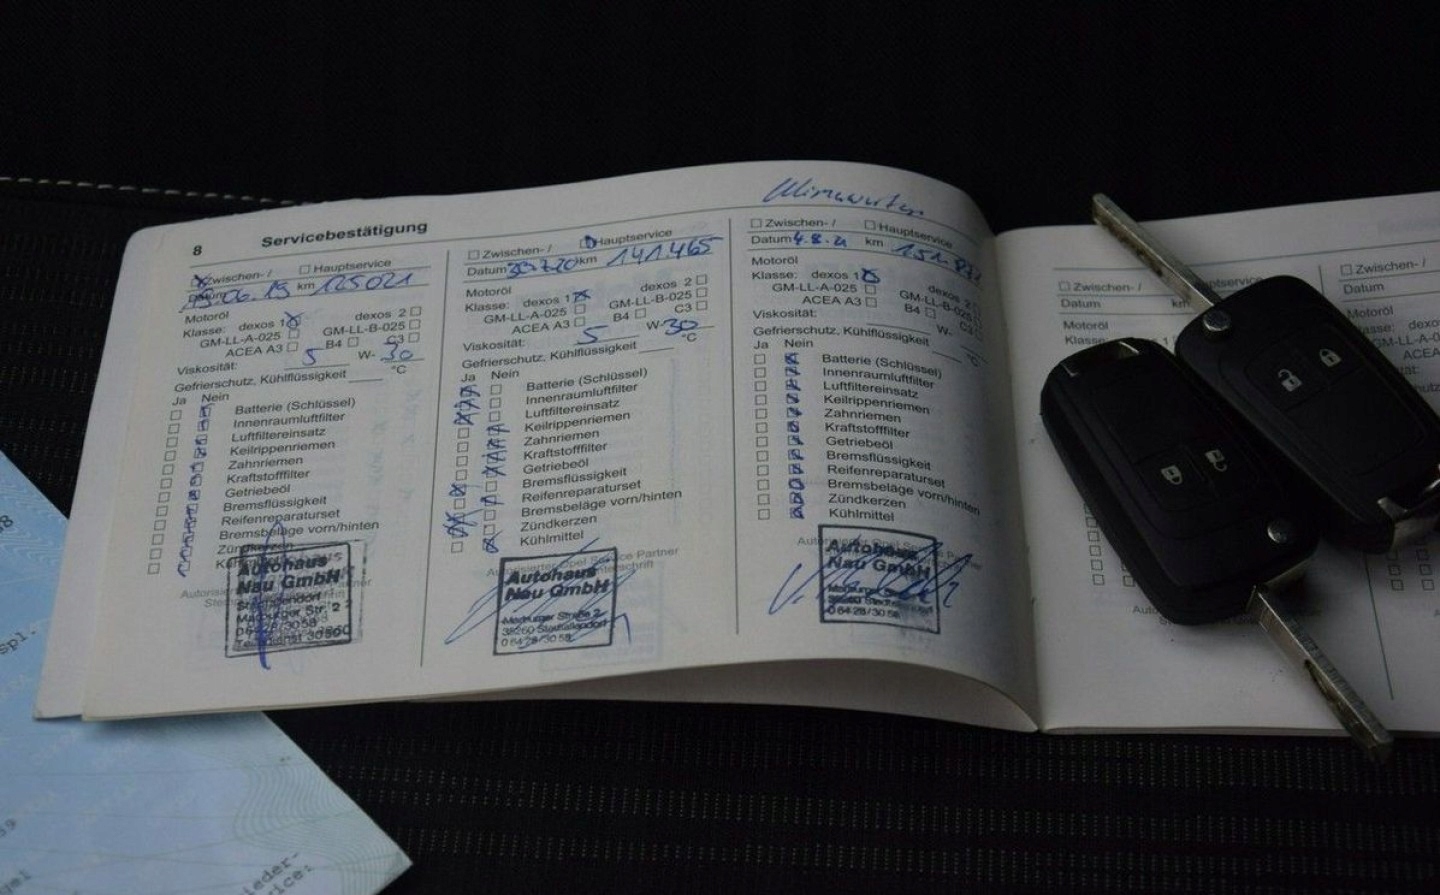 8 Servicebestätigung
Zwischen- / Hauptservice
Datum 19.06.19 km 125021
Motoröl
Klasse: dexos 1 dexos 2
GM-LL-A-025 GM-LL-B-025
ACEA A3 B4 C3
Viskosität: 5 W- 30
Gefrierschutz, Kühlflüssigkeit °C
Ja Nein
Batterie (Schlüssel)
Innenraumluftfilter
Luftfiltereinsatz
Keilrippenriemen
Zahnriemen
Kraftstofffilter
Getriebeöl
Bremsflüssigkeit
Reifenreparaturset
Bremsbeläge vorn/hinten
Zündkerzen
Autohaus
Nau GmbH
Stadtallendorf
Marburger Str. 2
06428/3058
Zwischen- / Hauptservice
Datum 30.7.20 km 141.465
Motoröl
Klasse: dexos 1 dexos 2
GM-LL-A-025 GM-LL-B-025
ACEA A3 B4 C3
Viskosität: 5 W- 30
Gefrierschutz, Kühlflüssigkeit °C
Ja Nein
Batterie (Schlüssel)
Innenraumluftfilter
Luftfiltereinsatz
Keilrippenriemen
Zahnriemen
Kraftstofffilter
Getriebeöl
Bremsflüssigkeit
Reifenreparaturset
Bremsbeläge vorn/hinten
Zündkerzen
Kühlmittel
Autorisierter Opel Service Partner
Autohaus
Nau GmbH
Marburger Straße 2
35260 Stadtallendorf
06428/3058
Zwischen- / Hauptservice
Datum 4.8.21 km
Motoröl
Klasse: dexos 1 dexos 2
GM-LL-A-025 GM-LL-B-025
ACEA A3 B4 C3
Viskosität: W-
Gefrierschutz, Kühlflüssigkeit °C
Ja Nein
Batterie (Schlüssel)
Innenraumluftfilter
Luftfiltereinsatz
Keilrippenriemen
Zahnriemen
Kraftstofffilter
Getriebeöl
Bremsflüssigkeit
Reifenreparaturset
Bremsbeläge vorn/hinten
Zündkerzen
Kühlmittel
Autohaus
Nau GmbH
06428/3058
Zwischen- /
Datum km
Motoröl
Klasse:
Zwischen- /
Datum
Motoröl